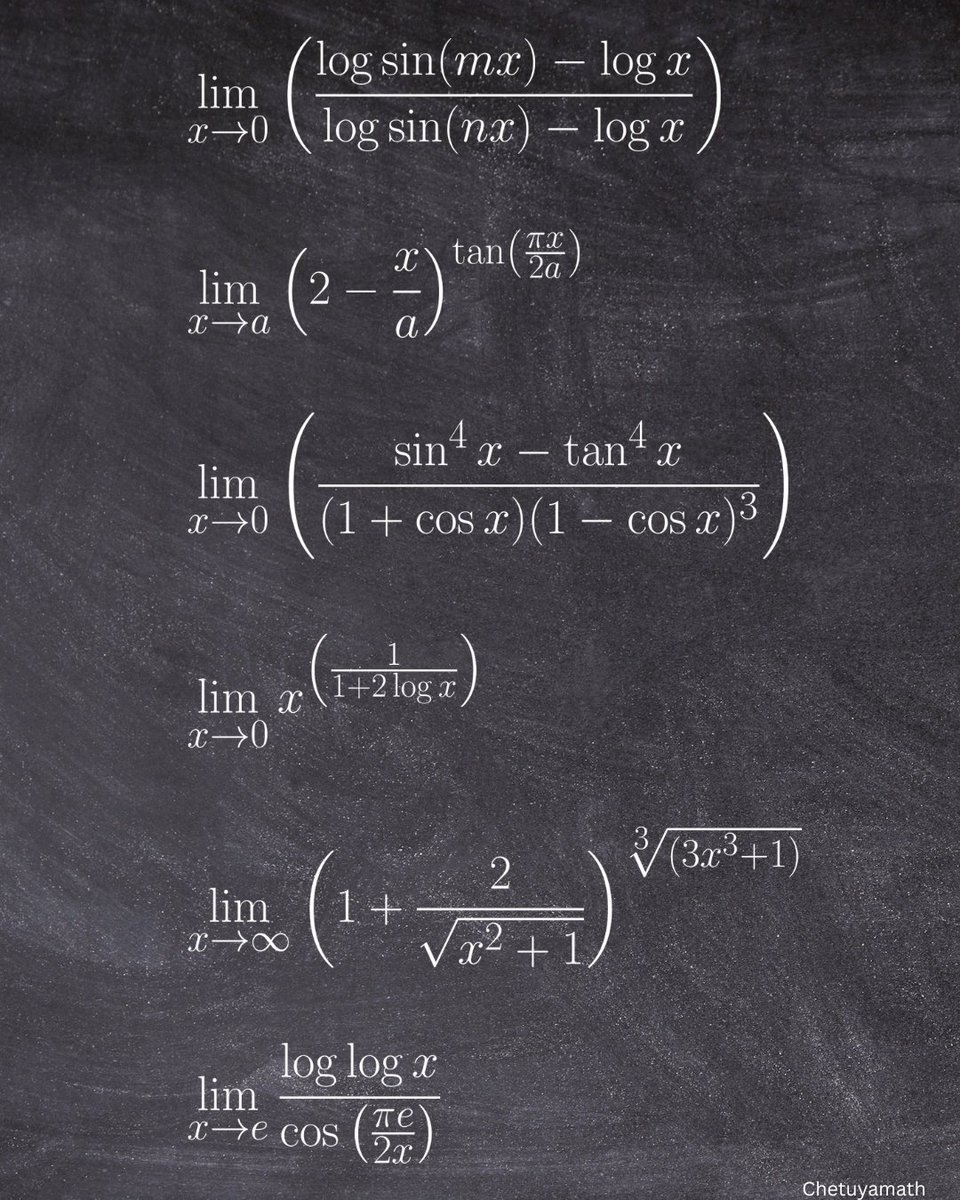 $\lim_{x \to 0} \left( \frac{\log \sin(mx) - \log x}{\log \sin(nx) - \log x} \right)$
$\lim_{x \to a} \left( 2 - \frac{x}{a} \right)^{\tan\left(\frac{\pi x}{2a}\right)}$
$\lim_{x \to 0} \left( \frac{\sin^4 x - \tan^4 x}{(1 + \cos x)(1 - \cos x)^3} \right)$
$\lim_{x \to 0} x^{\left( \frac{1}{1 + 2 \log x} \right)}$
$\lim_{x \to \infty} \left( 1 + \frac{2}{\sqrt{x^2 + 1}} \right)^{\sqrt[3]{(3x^3 + 1)}}$
$\lim_{x \to e} \frac{\log \log x}{\cos \left( \frac{\pi e}{2x} \right)}$
Chetuyamath